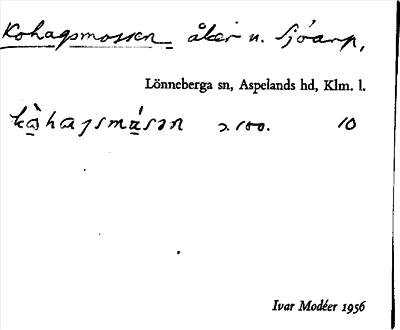 Kohagsmossen åker n. Sjöarp,
Lönneberga sn, Aspelands hd, Klm. l.
kàhagsmásən 10
Ivar Modéer 1956